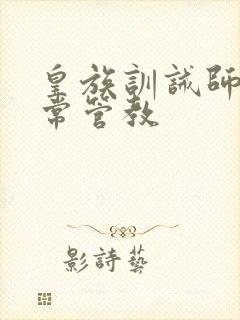 皇族訓誡師
常管教
影詩藝